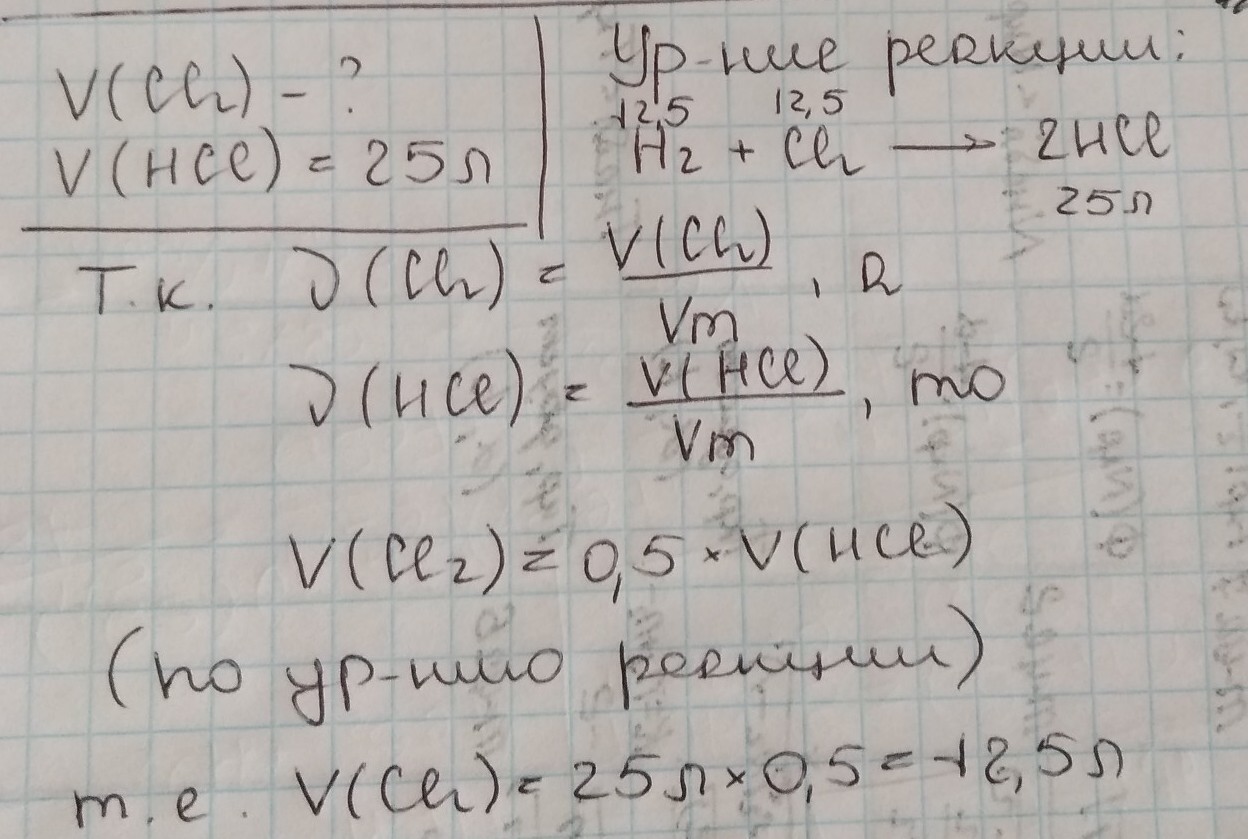 V(Cl₂) - ?
V(HCl) = 25 л
Ур-ние реакции:
12,5 12,5
H₂ + Cl₂ ⟶ 2HCl
25 л
Т.к. ν(Cl₂) = V(Cl₂)/Vm, а
ν(HCl) = V(HCl)/Vm, то
V(Cl₂) = 0,5 × V(HCl)
(по ур-нию реакции)
т.е. V(Cl₂) = 25 л × 0,5 = 12,5 л